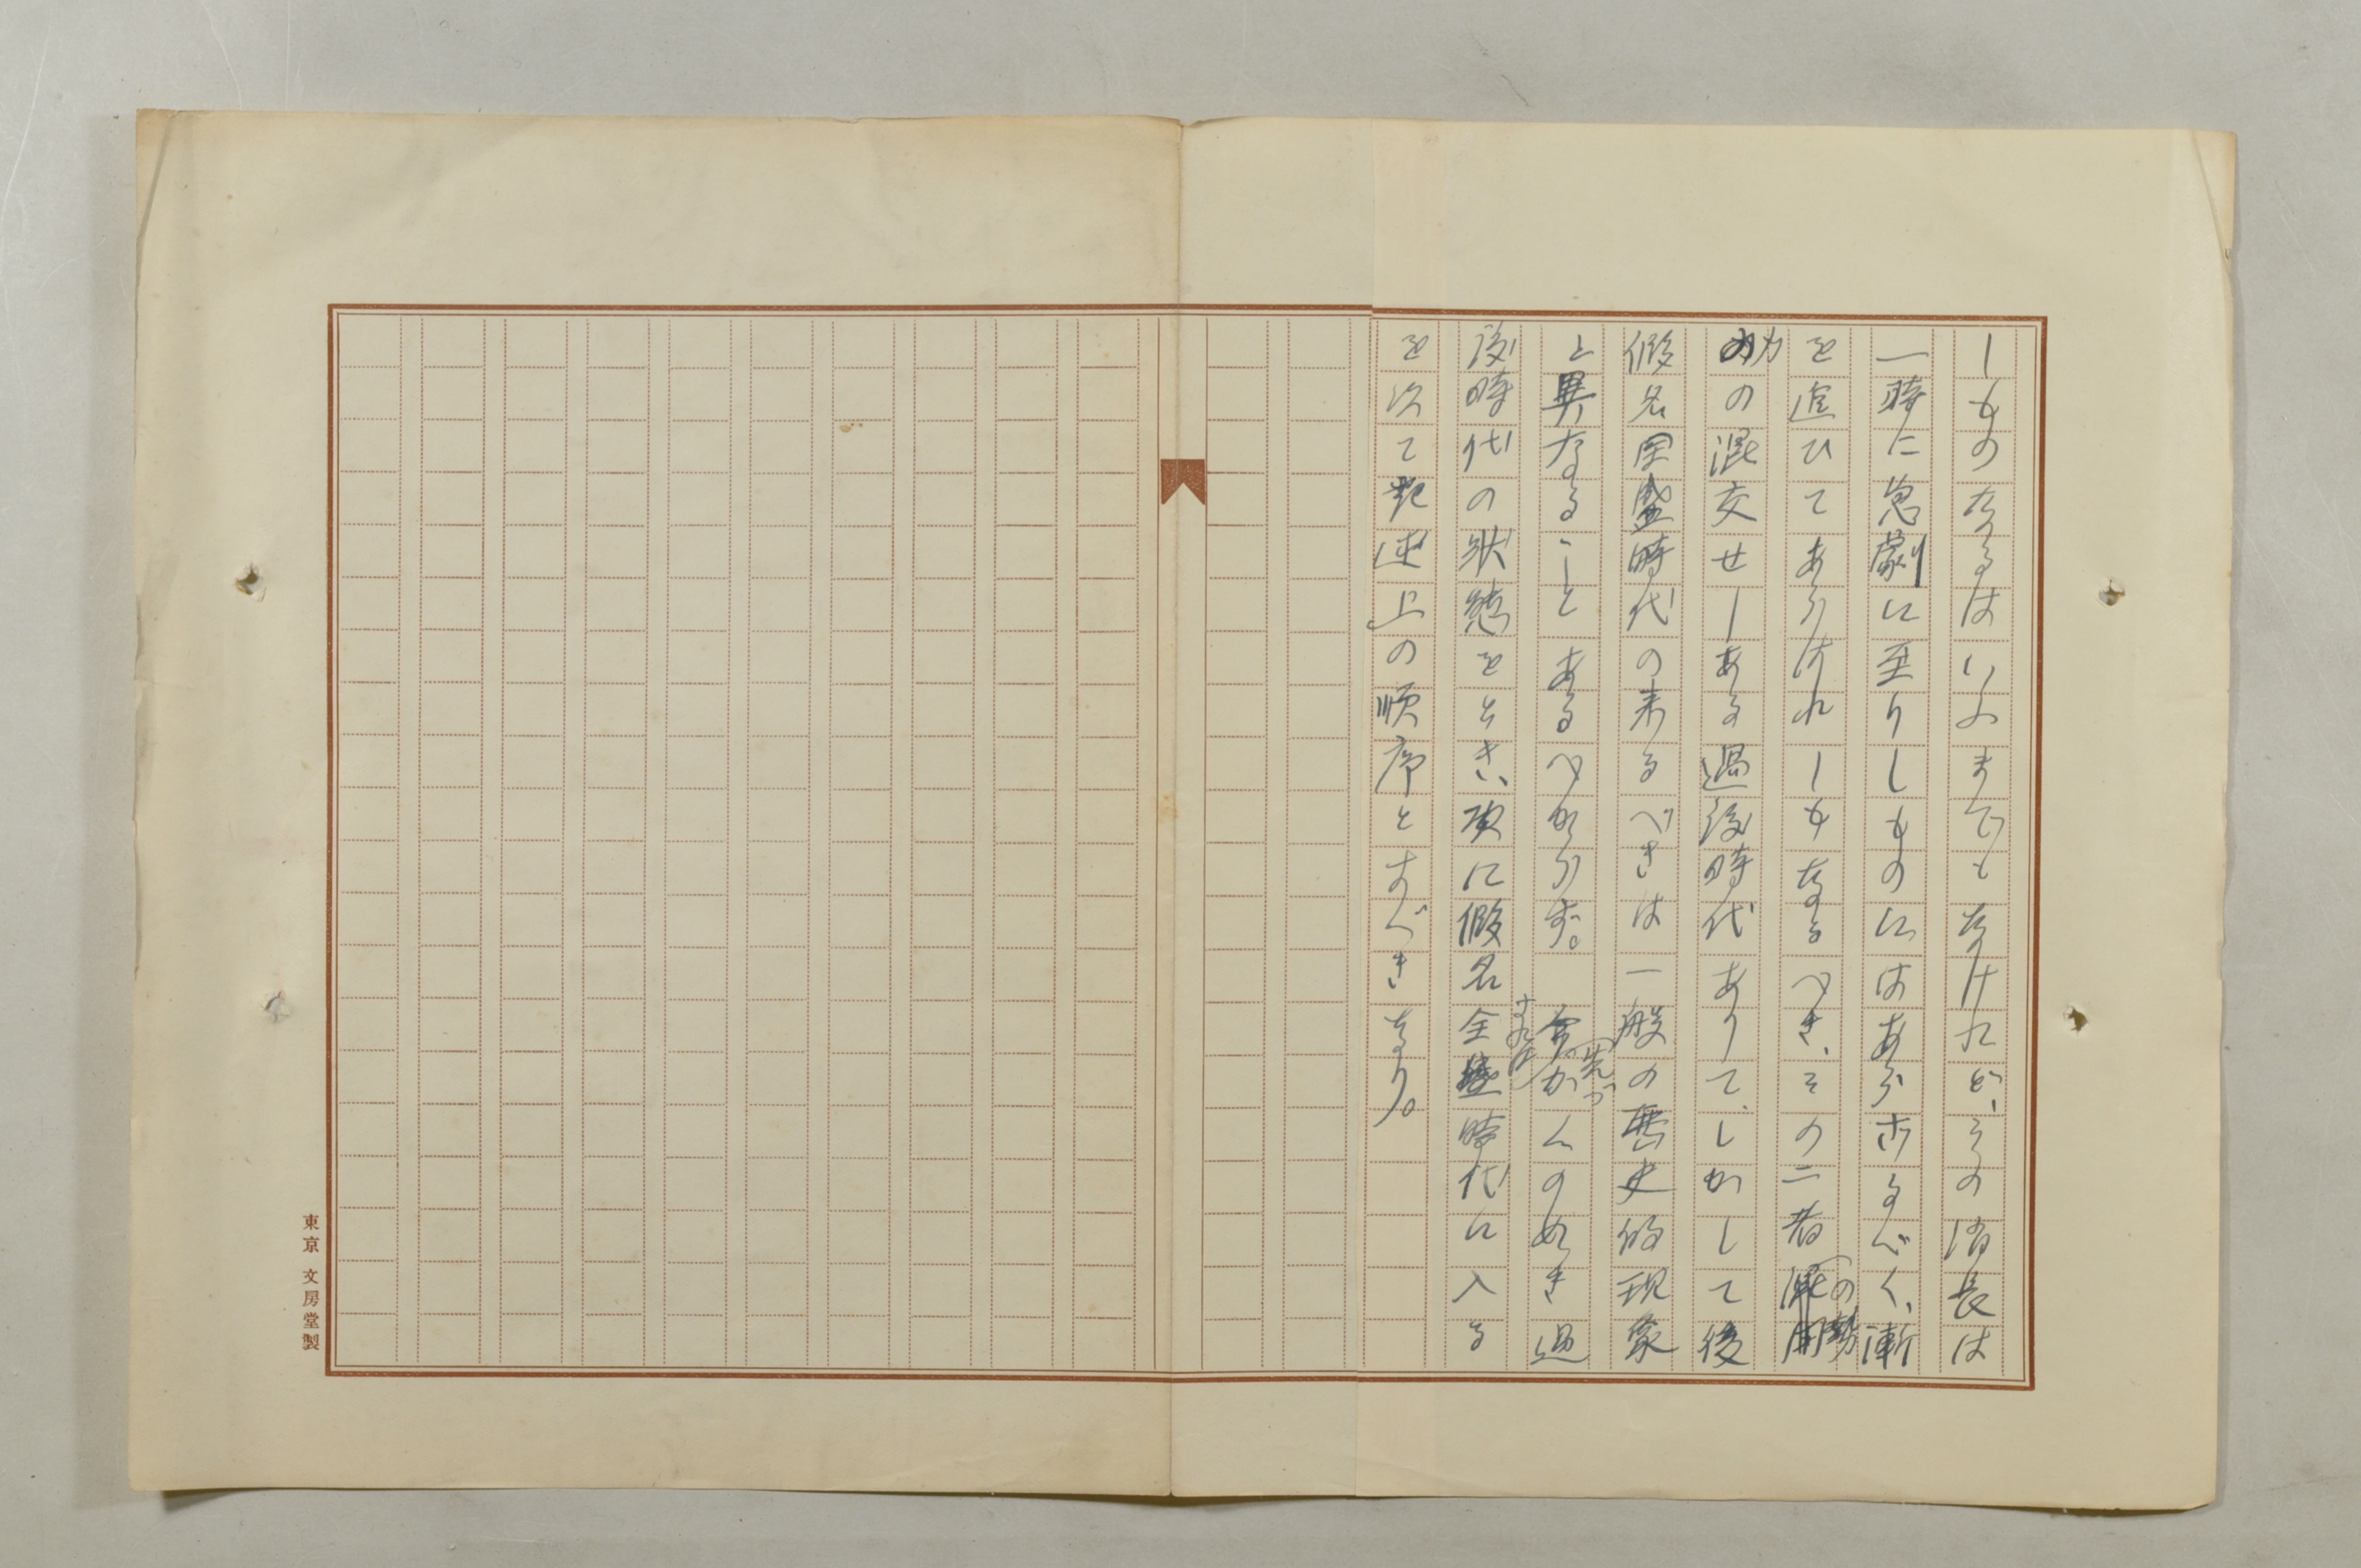 しものなるはいふまでもなけれど、その消長は
一時に急劇に至りしものにはあらざるべく、漸
を追ひてあらはれしもなるべき、その二者の勢
力の混交せしある過渡時代ありて、しかして後
假名全盛時代の来るべきは一般の歴史的現象
と異なることあるべからず。 先づかくのめき過
渡時代の状態をとき、次に假名全盛時代に入る
を以て敍述上の順序とすべきなり。
東京 文房堂製